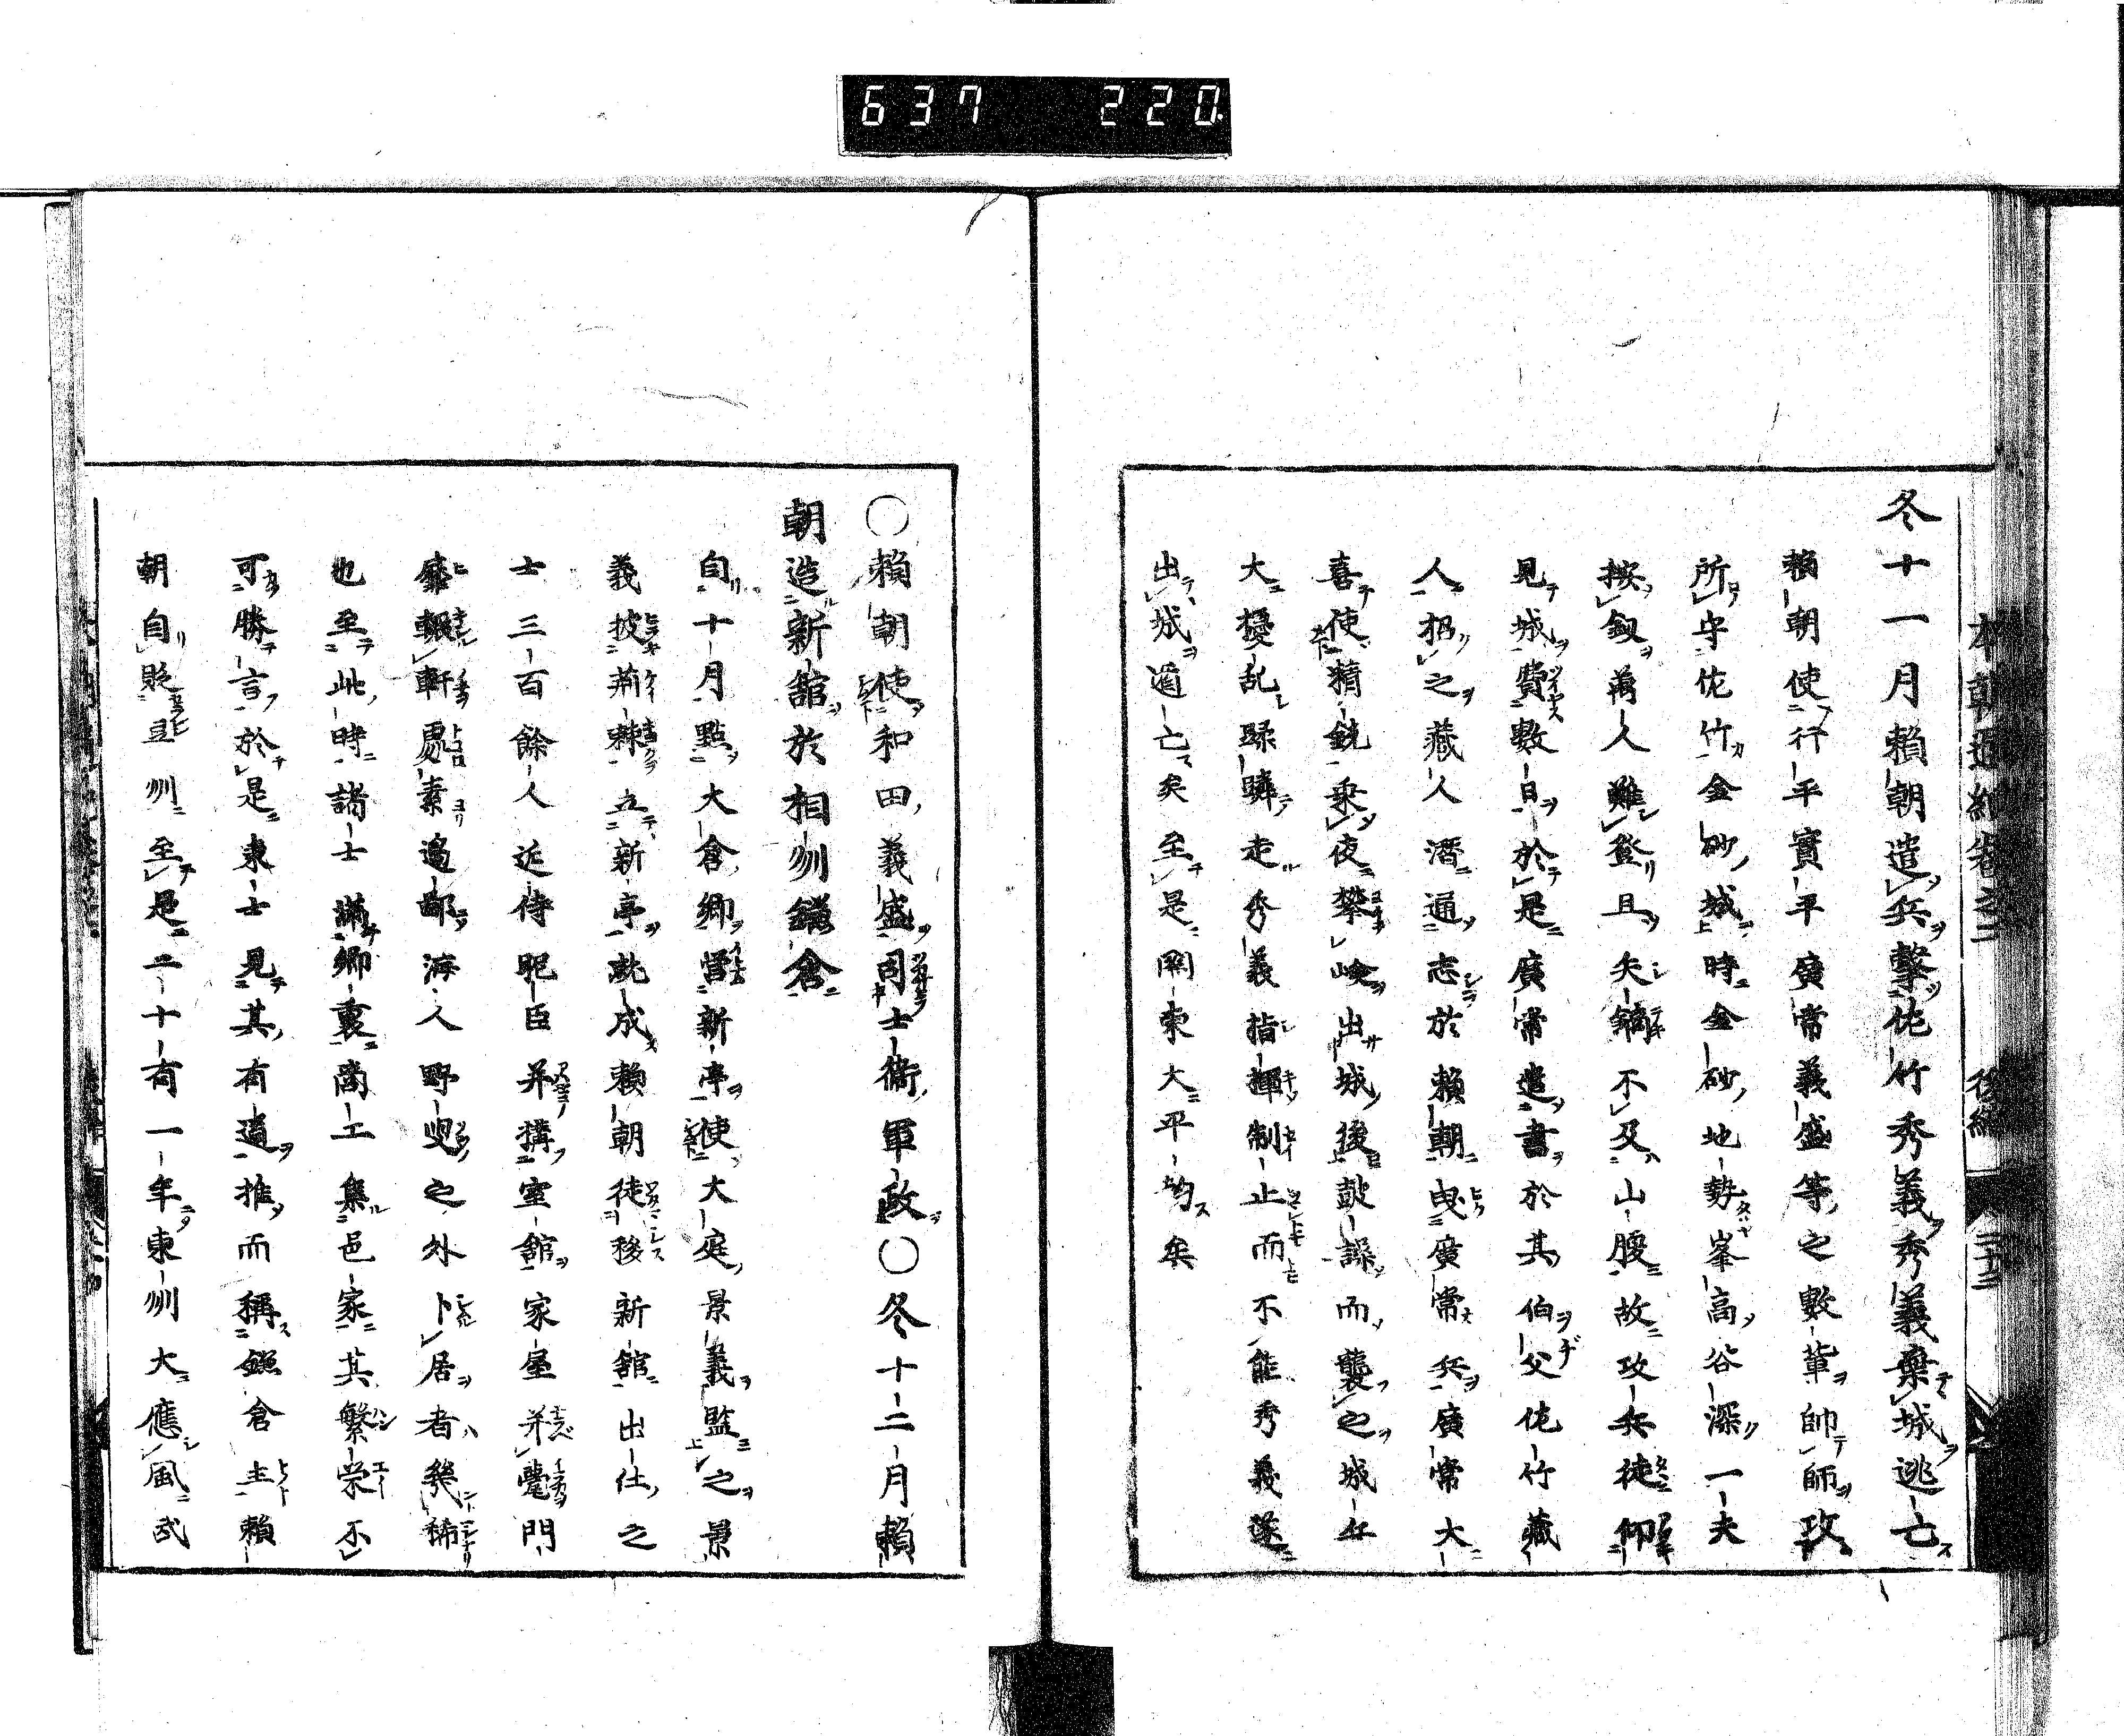 637 220
本朝通紀卷之二 後編 二十二
冬十一月賴朝遣兵擊佐竹秀義秀義棄城逃亡
賴朝使行平實平廣常義盛等之數輩帥師攻
所守佐竹金砂城時金砂地勢峯高谷深一夫
按釼萬人難登且矢鏑不及山腹故攻兵徒仰
見城費數日於是廣常遣書於其伯父佐竹藏
人招之藏人潛通志於賴朝曳廣常兵廣常大
喜使精銳乘夜攀嶮出城後鼓譟而襲之城兵
大擾乱蹂躪走秀義指揮制止而不能秀義遂
出城遁亡矣至是関東大平均矣
○賴朝使和田義盛司士衞軍政○冬十二月賴
朝造新舘於相州鎌倉
自十月點大倉鄉營新亭使大庭景義監之景
義披荊棘立新亭既成賴朝徙移新舘出仕之
士三百餘人近侍昵臣并構室舘家屋并甍門
扉輾軒處素邉鄙海人野叟之外卜居者幾稀
也至此時諸士満鄉裏商工集邑家其繁栄不
可勝言於是東士見其有道推而稱鎌倉主賴
朝自貶豆州至是二十有一年東州大應風武